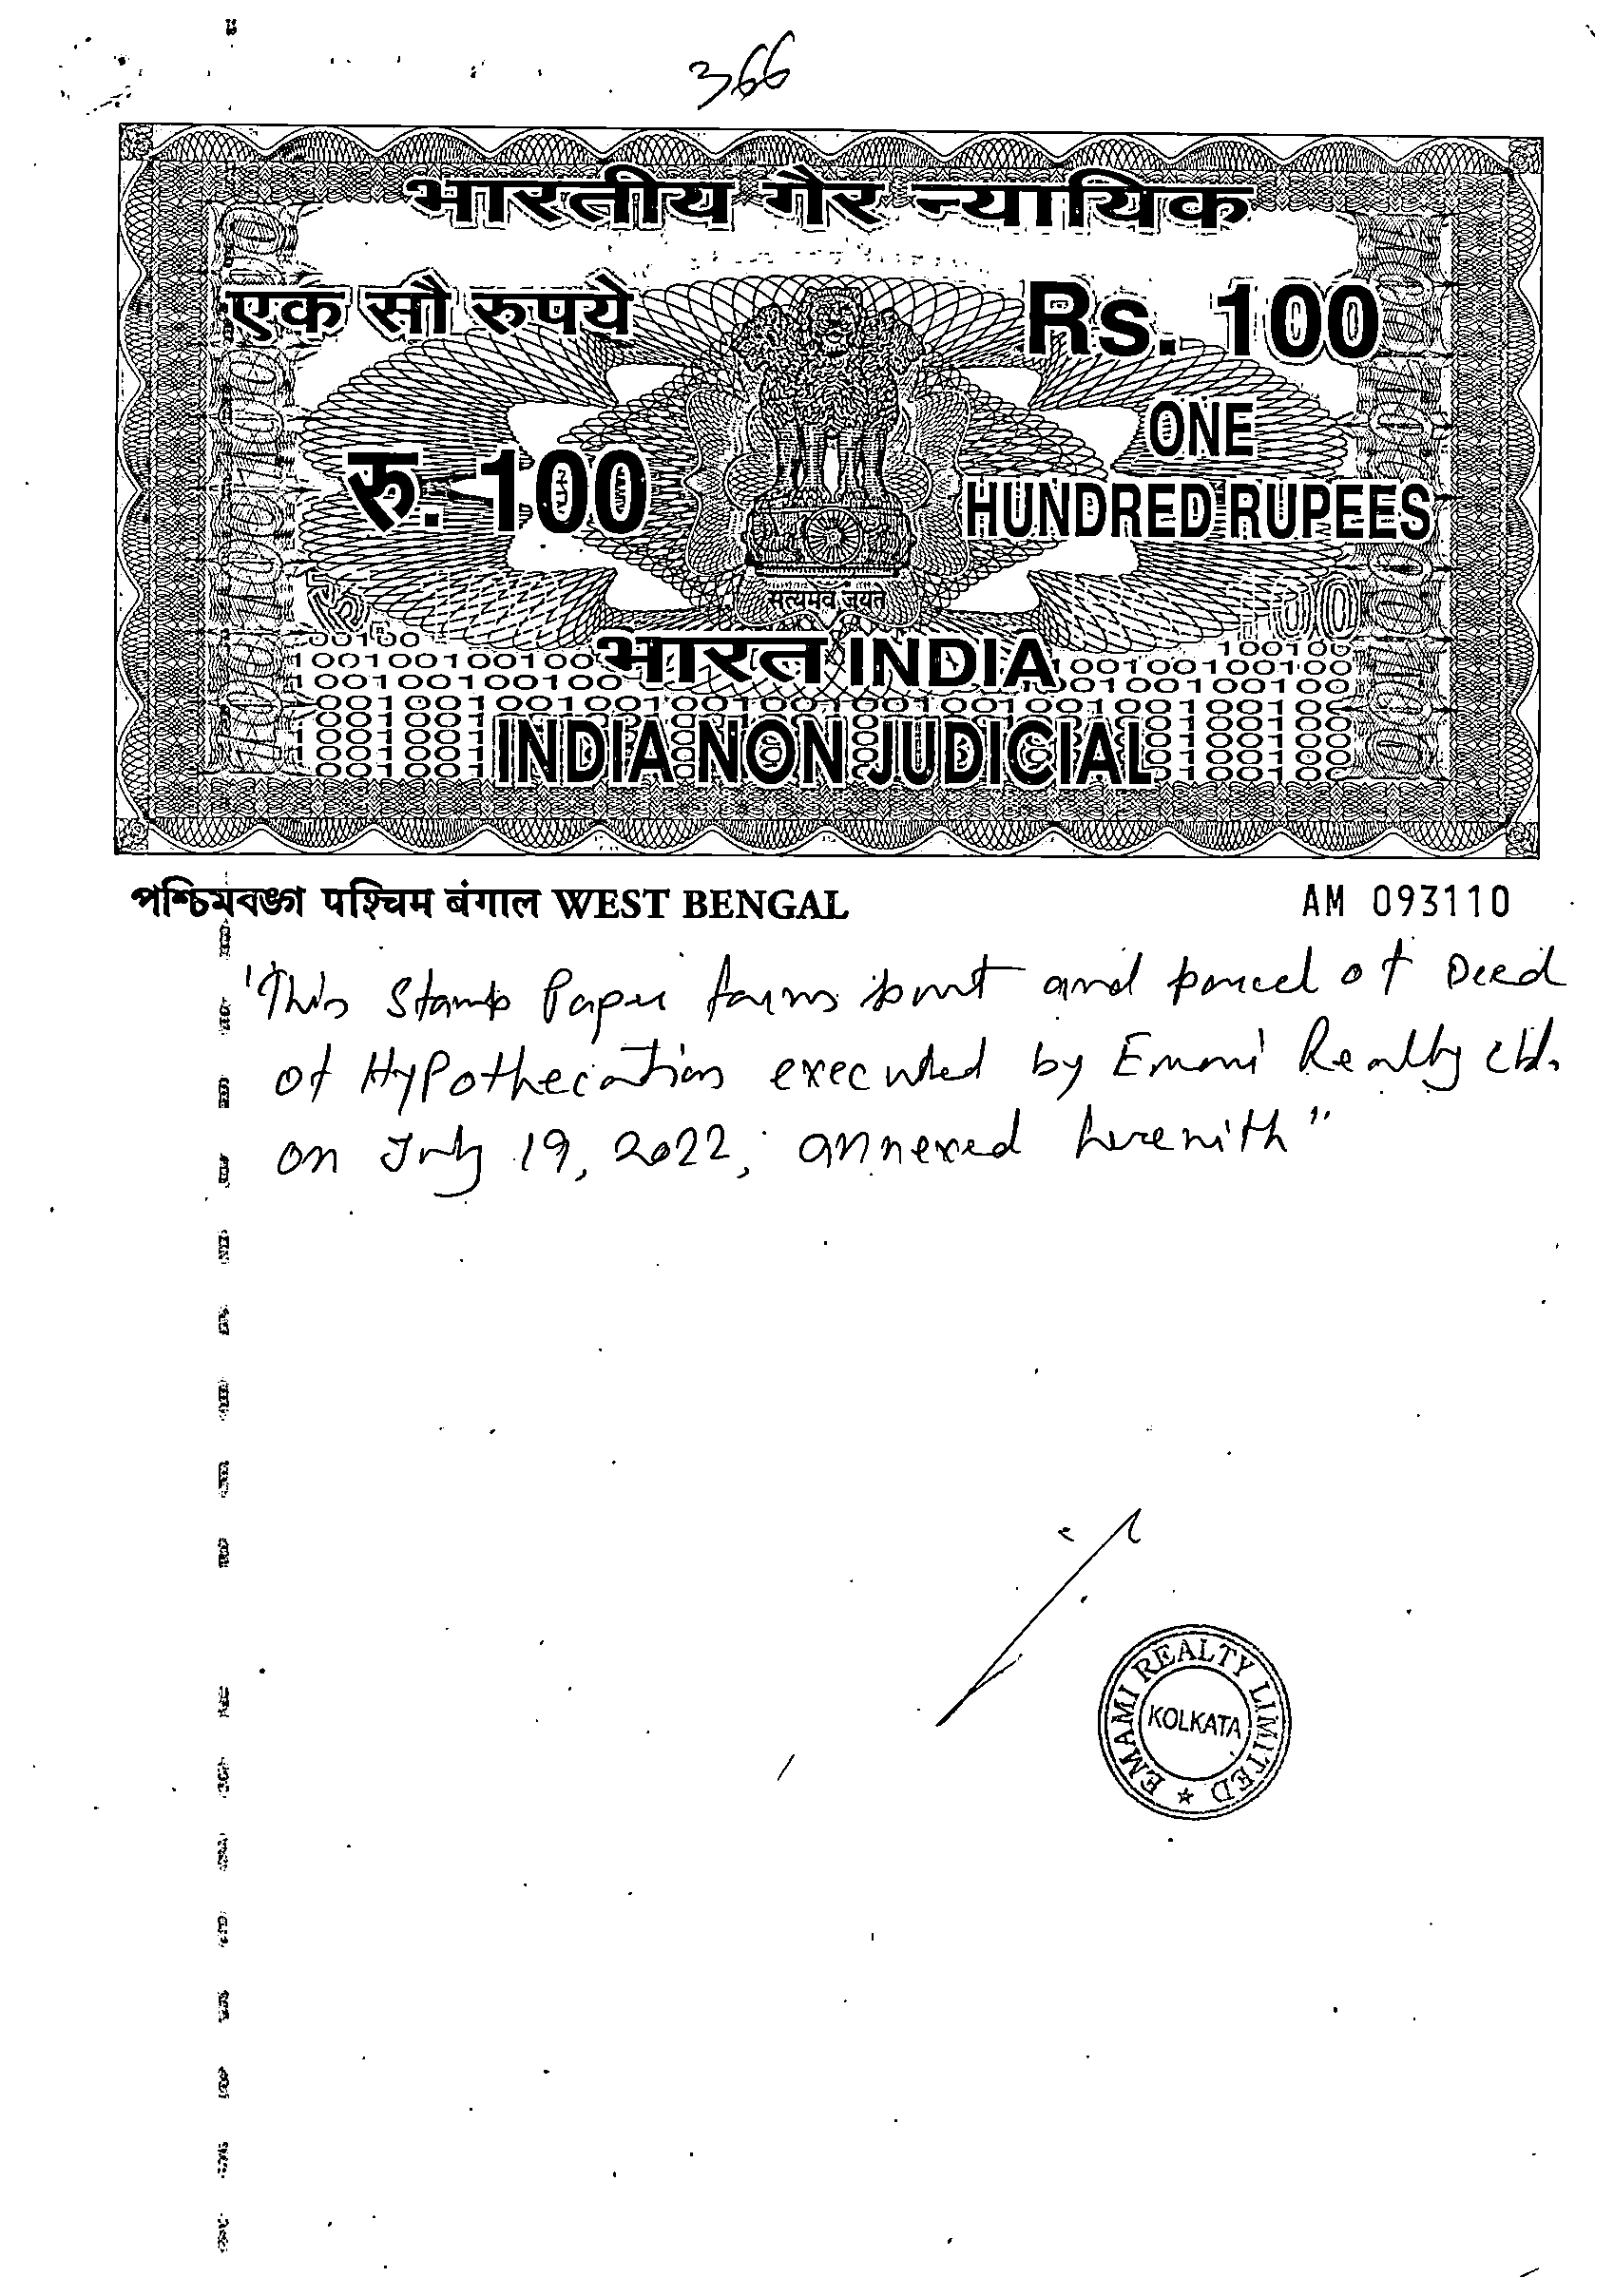 366
भारतीय गैर न्यायिक
एक सौ रुपये
Rs. 100
रु. 100
ONE
HUNDRED RUPEES
सत्यमेव जयते
भारत INDIA
INDIA NON JUDICIAL
পশ্চিমবঙ্গ पश्चिम बंगाल WEST BENGAL
AM 093110
"This Stamp Paper forms part and parcel of Deed
of Hypothecation executed by Emami Realty Ltd.
on July 19, 2022, annexed herewith"
EMAMI REALTY LIMITED
KOLKATA